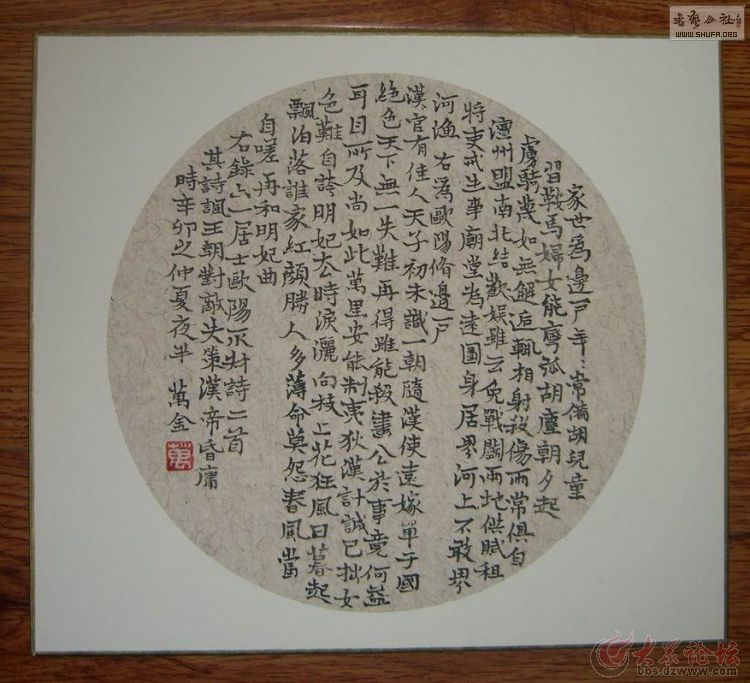 家世為邊戶年〻常備胡兒童
習鞍馬婦女能彎弧胡塵朝夕起
虜騎蔑如無邂逅輒相射殺傷兩常俱自
澶州盟南北結歡娛雖云免戰鬭兩地供賦租
將吏戒生事廟堂為遠圖身居界河上不敢界
河漁 右為歐陽脩邊戶
漢宮有佳人天子初未識一朝隨漢使遠嫁單于國
絕色天下無一失難再得雖能殺畫工於事竟何益
耳目所及尚如此萬里安能制夷狄漢計誠已拙女
色難自誇明妃去時淚灑向枝上花狂風日暮起
飄泊落誰家紅顏勝人多薄命莫怨春風當
自嗟 再和明妃曲
右錄六一居士歐陽永叔詩二首
其詩諷王朝對敵失策漢帝昏庸
時辛卯之仲夏夜半 萬金
萬
WWW.SHUFA.ORG
大众论坛
bbs.dzwww.com